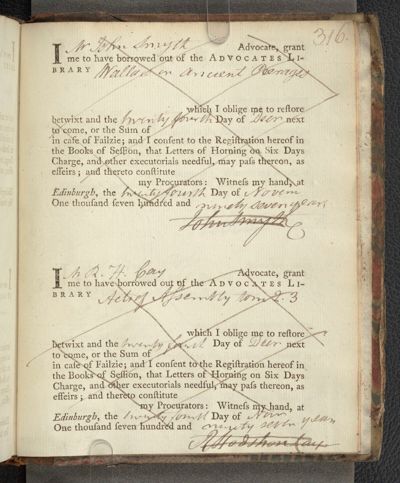 316.
I Mr John Smyth Advocate, grant
me to have borrowed out of the ADVOCATES LI-
BRARY Wallace on ancient Peerages
which I oblige me to reſtore
betwixt and the twenty fourth Day of Decr next
to come, or the Sum of
in caſe of Failzie; and I conſent to the Regiſtration hereof in
the Books of Seſſion, that Letters of Horning on Six Days
Charge, and other executorials needful, may paſs thereon, as
effeirs; and thereto conſtitute
my Procurators: Witneſs my hand, at
Edinburgh, the twenty fourth Day of Novem
One thouſand ſeven hundred and ninety seven years
John Smyth
I Mr R. H. Cay Advocate, grant
me to have borrowed out of the ADVOCATES LI-
BRARY Acts of Assembly tom. 3
which I oblige me to reſtore
betwixt and the twenty fourth Day of Decr next
to come, or the Sum of
in caſe of Failzie; and I conſent to the Regiſtration hereof in
the Books of Seſſion, that Letters of Horning on Six Days
Charge, and other executorials needful, may paſs thereon, as
effeirs; and thereto conſtitute
my Procurators: Witneſs my hand, at
Edinburgh, the twenty fourth Day of Novr
One thouſand ſeven hundred and ninety seven years
R Hodshon Cay